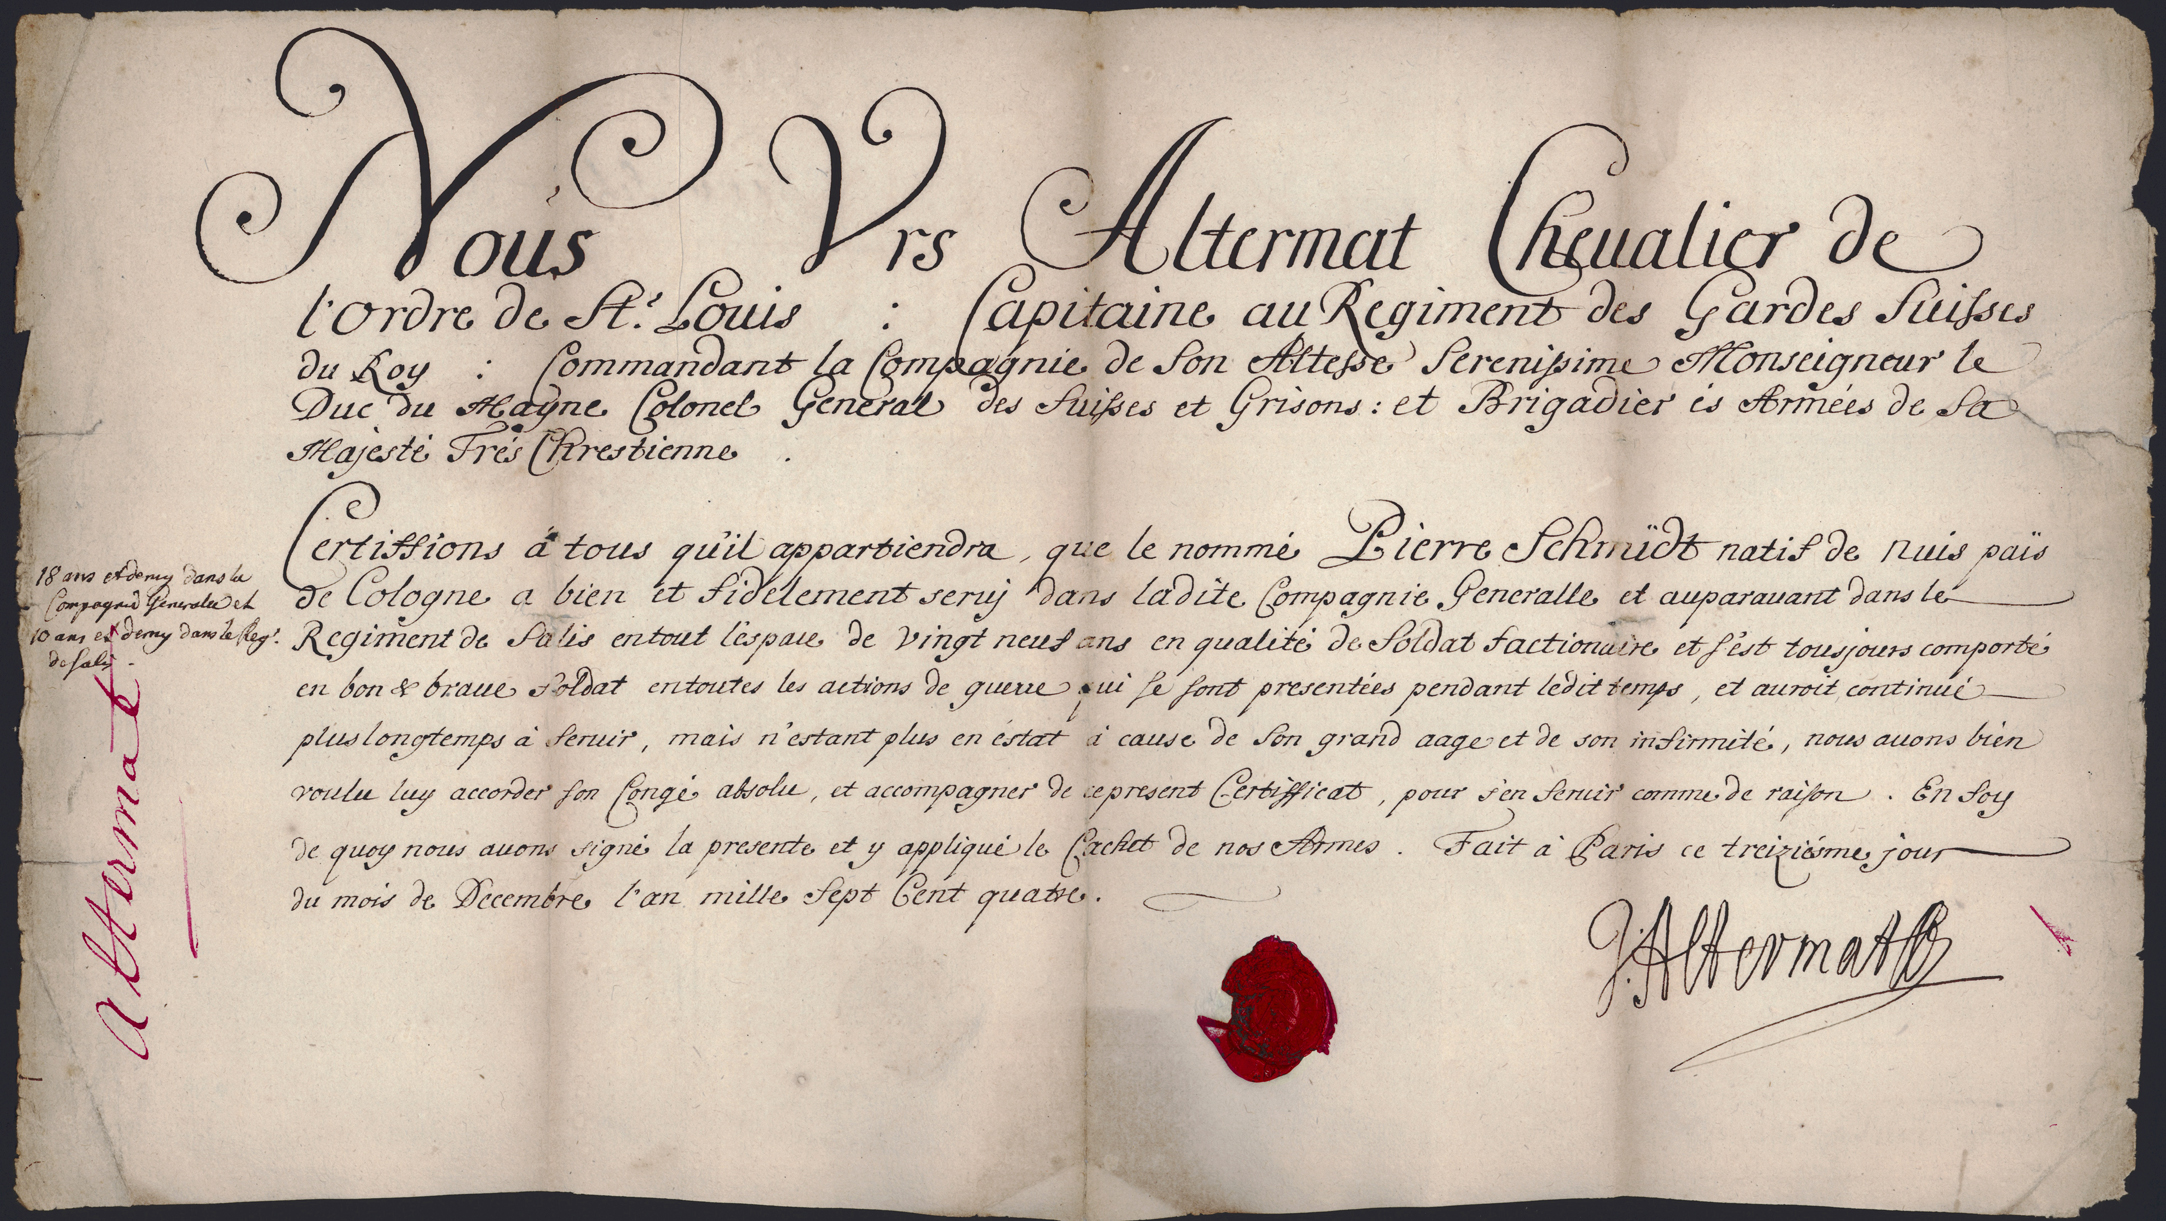 Nous Vrs Altermat Cheualier de
l'Ordre de St. Louis : Capitaine au Regiment des Gardes Suisses
du Roy : Commandant la Compagnie de Son Altesse Serenissime Monseigneur le
Duc du Mayne Colonel General des Suisses et Grisons : et Brigadier és Armées de Sa
Majesté Trés Chrestienne .
Certiffions à tous qu'il appartiendra, que le nommé Pierre Schmüdt natif de nuis païs
de Cologne a bien et fidelement seruy dans ladite Compagnie Generalle et auparauant dans le
Regiment de Salis en tout l'espace de vingt neuf ans en qualité de Soldat factionaire et s'est tousjours comporté
en bon & braue Soldat en toutes les actions de guerre qui se sont presentées pendant ledit temps, et auroit continué
plus longtemps à seruir, mais n'estant plus en éstat à cause de son grand aage et de son infirmité, nous auons bien
voulu luy accorder son Congé absolu, et accompagner de ce present Certifficat, pour s'en seruir comme de raison . En foy
de quoy nous auons signé la presente et y appliqué le Cachet de nos Armes . Fait à Paris ce treiziésme jour
du mois de Decembre l'an mille Sept Cent quatre .
J. Altermatt
18 ans et demy dans la
Compagnie Generalle et
10 ans et demy dans le Regt.
de Salis .
altermatt